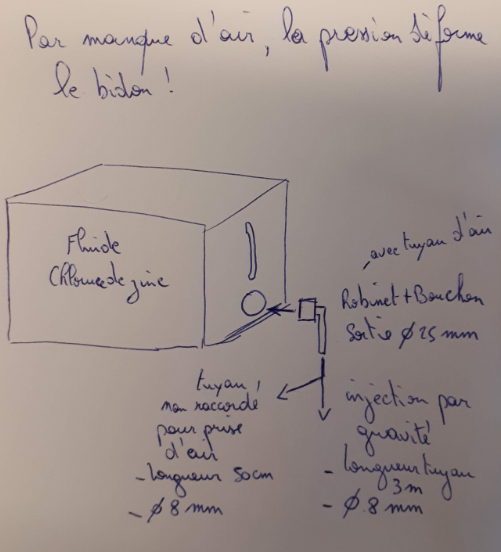 Par manque d'air, la pression déforme
le bidon !
Fluide
Chlorure de zinc
avec tuyau d'air
Robinet + Bouchon
Sortie ø 25 mm
tuyau
non raccordé
pour prise
d'air
- Longueur 50cm
- ø 8 mm
injection par
gravité
- Longueur tuyau
3m
- ø 8 mm